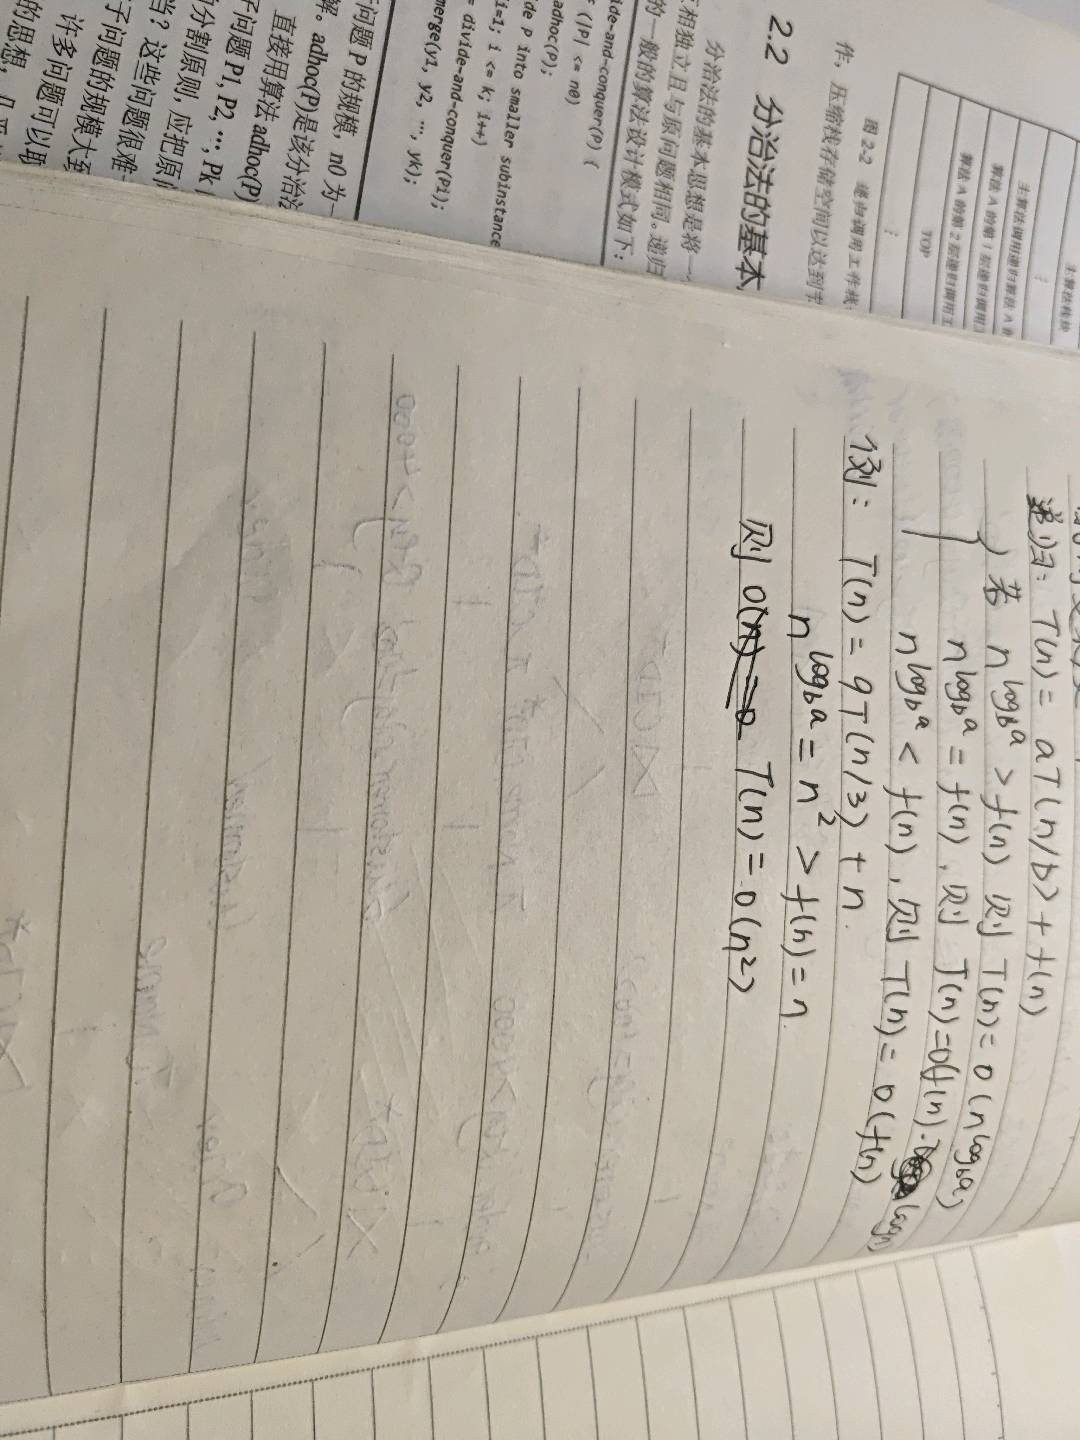 主算法栈块
⋮
主算法调用递归算法 A
算法 A 的第 1 层递归调用
算法 A 的第 2 层递归调用工
TOP
⋮
图 2-2 递归调用工作栈
件，压缩栈存储空间以达到节
2.2 分治法的基本
分治法的基本思想是将一
相独立且与原问题相同。递归
的一般的算法设计模式如下：
ide-and-conquer(P) {
(|P| <= n0)
adhoc(P);
de P into smaller subinstance
i=1; i <= k; i++)
= divide-and-conquer(Pi);
merge(y1, y2, …, yk);
问题 P 的规模，n0 为一
解。adhoc(P)是该分治法
直接用算法 adhoc(P)
子问题 P1, P2, …, Pk
分割原则，应把原
当？这些问题很难
子问题的规模大至
许多问题可以取
的思想，
递归： T(n) = aT(n/b) + f(n)
若 n^log_b a > f(n) 则 T(n) = O(n^log_b a)
n^log_b a = f(n)，则 T(n) = O(f(n)·logn)
n^log_b a < f(n)，则 T(n) = O(f(n))
例： T(n) = 9T(n/3) + n.
n^log_b a = n² > f(n) = n.
则 O(n) = T(n) = O(n²)